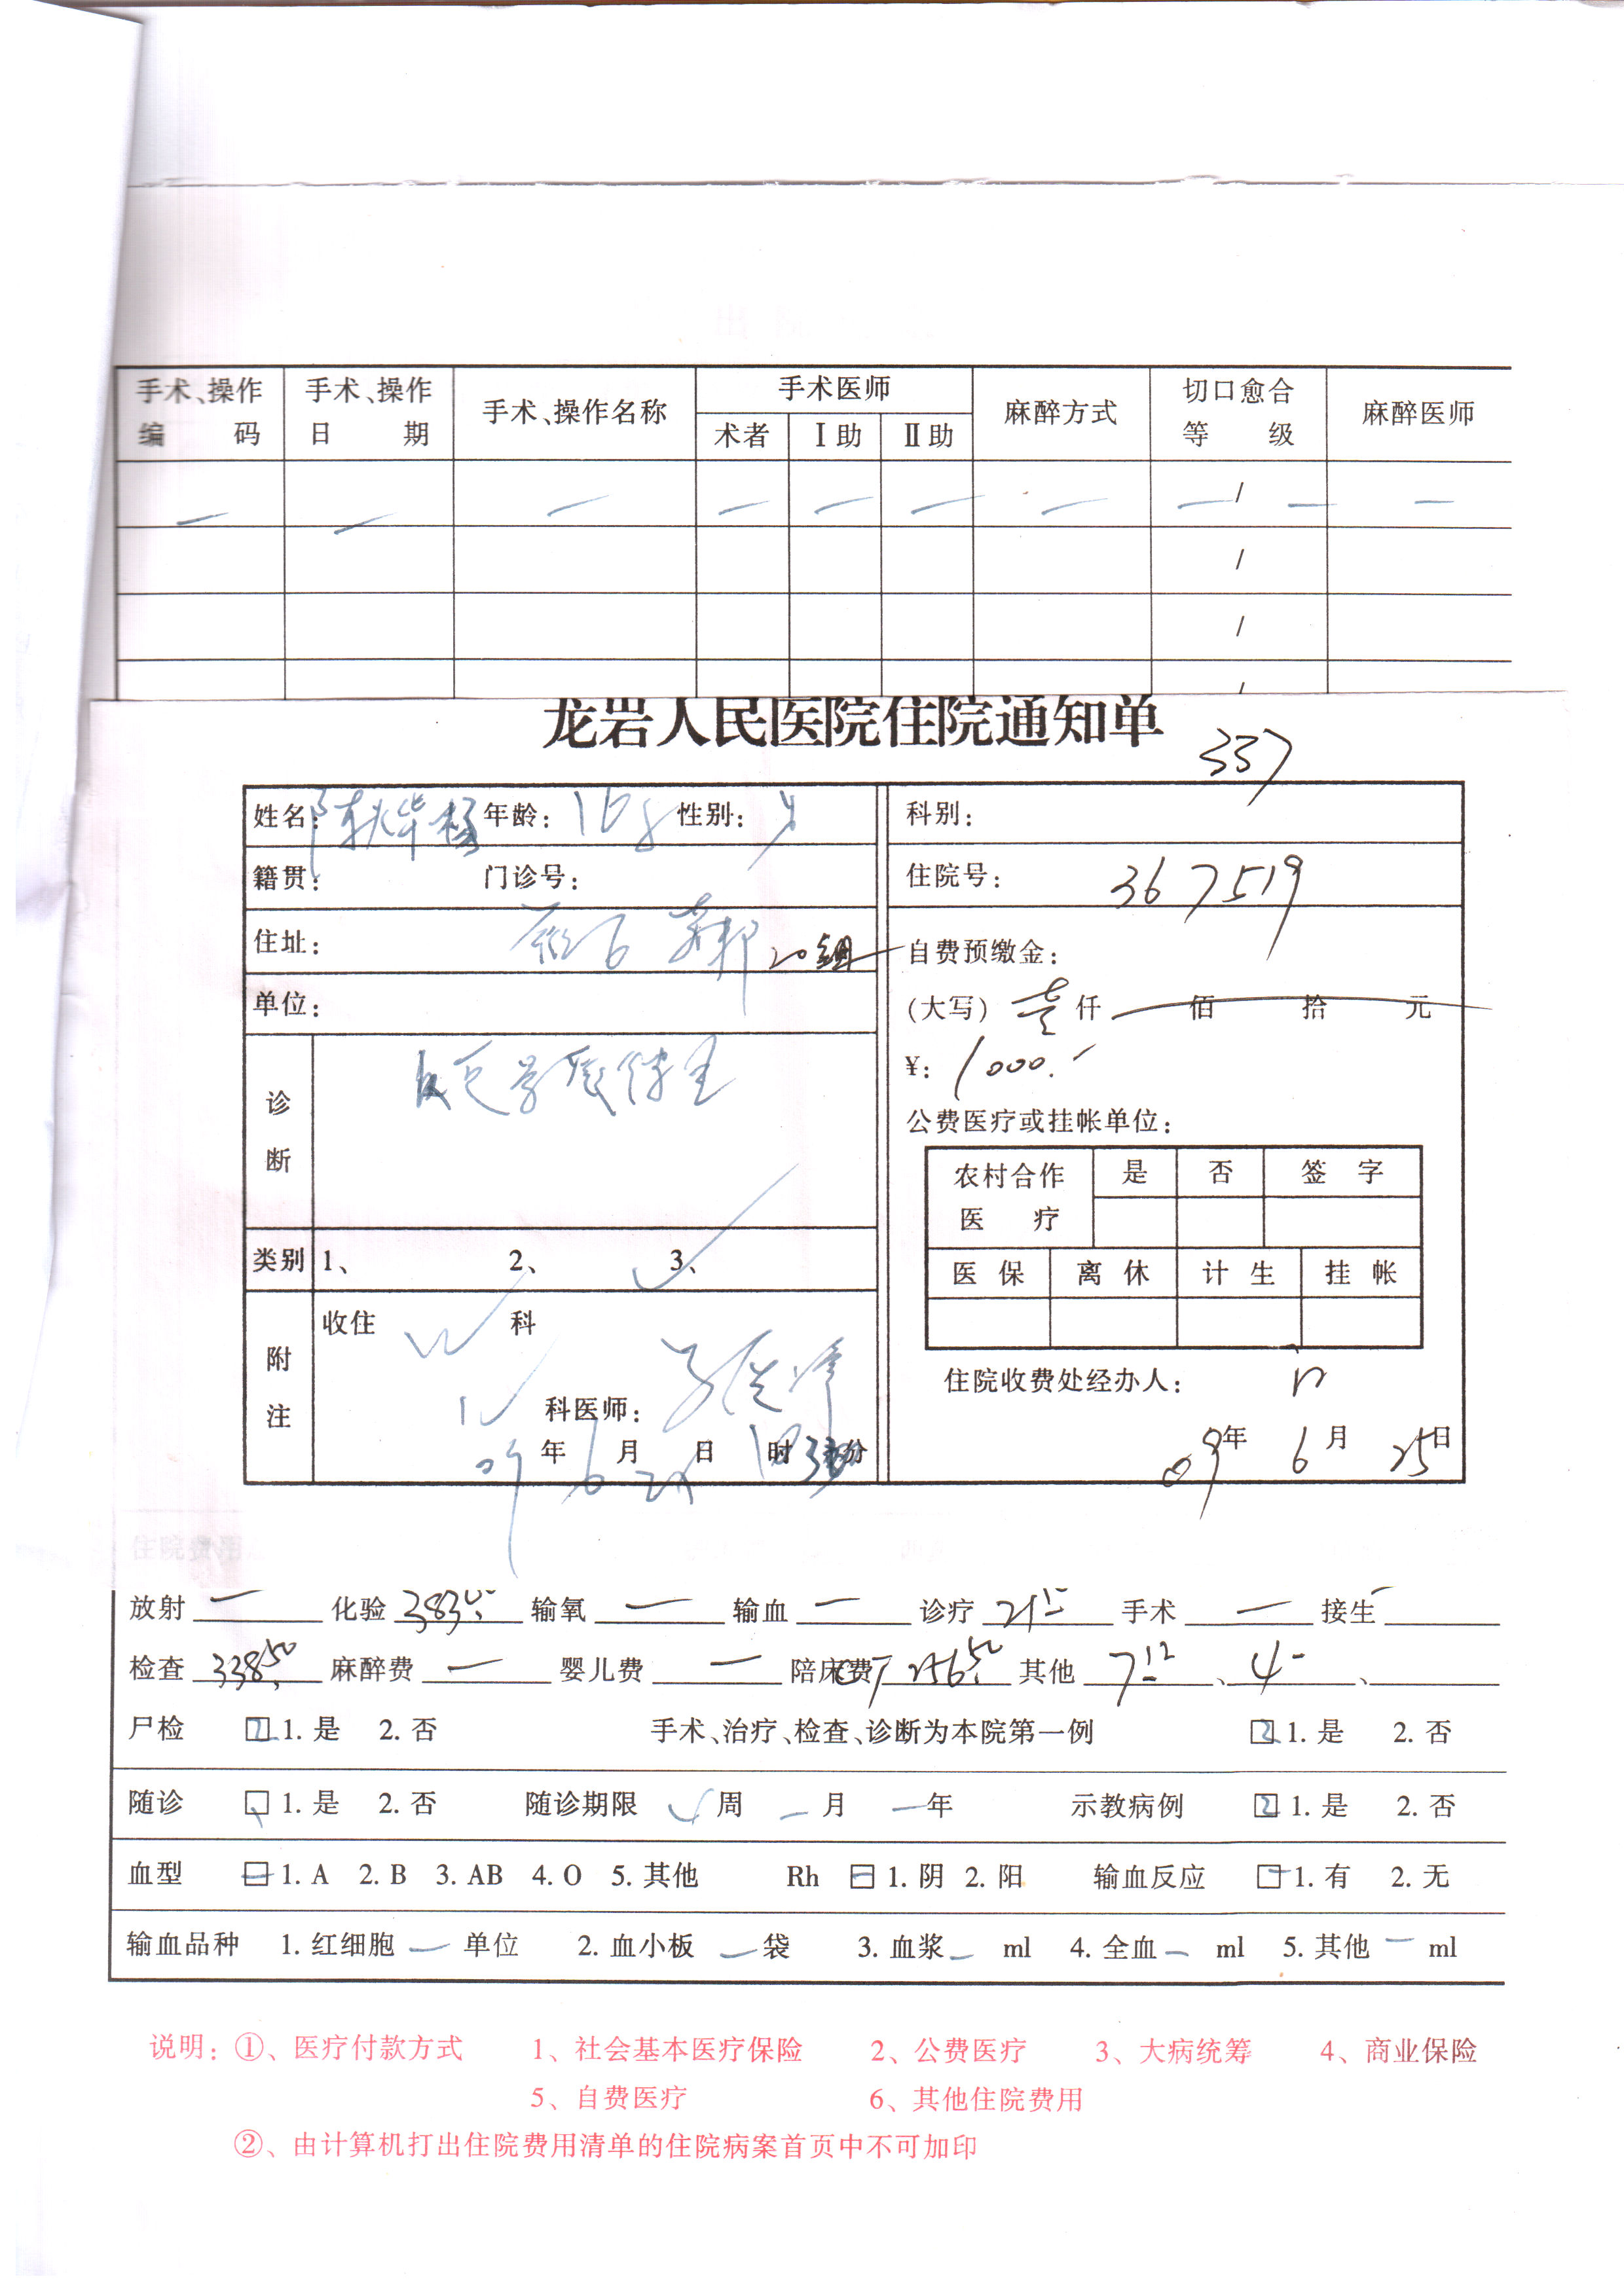 手术、操作编码 手术、操作日期 手术、操作名称 手术医师 麻醉方式 切口愈合等级 麻醉医师
术者 Ⅰ助 Ⅱ助
— — — — — — — — / — —
/
/
/
龙岩人民医院住院通知单
337
姓名: 年龄: 16岁 性别: 男 科别:
籍贯: 门诊号: 住院号: 367519
住址: 20组
自费预缴金:
单位:
(大写) 壹 仟 佰 拾 元
¥: 1000.-
诊断
公费医疗或挂帐单位:
农村合作医疗 是 否 签字
类别 1、 2、 3、 ✓
医保 离休 计生 挂帐
附注
收住 科
住院收费处经办人:
科医师:
09年 6月 日 时 分
09年 6月 25日
住院费用
放射 — 化验 输氧 — 输血 — 诊疗 手术 — 接生 —
检查 338.50 麻醉费 — 婴儿费 — 陪床费 256.50 其他 7.12 、 4- 、
尸检 2 1. 是 2. 否 手术、治疗、检查、诊断为本院第一例 2 1. 是 2. 否
随诊 1. 是 2. 否 随诊期限 周 — 月 — 年 示教病例 2 1. 是 2. 否
血型 — 1. A 2. B 3. AB 4. O 5. 其他 Rh — 1. 阴 2. 阳 输血反应 — 1. 有 2. 无
输血品种 1. 红细胞 — 单位 2. 血小板 — 袋 3. 血浆 — ml 4. 全血 — ml 5. 其他 — ml
说明: ①、医疗付款方式 1、社会基本医疗保险 2、公费医疗 3、大病统筹 4、商业保险
5、自费医疗 6、其他住院费用
②、由计算机打出住院费用清单的住院病案首页中不可加印